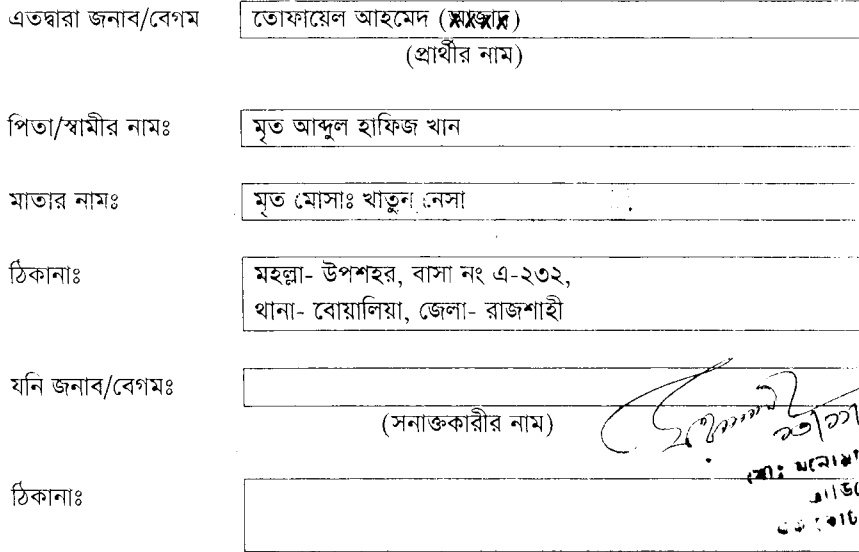 এতদ্বারা জনাব/বেগম তোফায়েল আহমেদ
(প্রার্থীর নাম)
পিতা/স্বামীর নামঃ মৃত আব্দুল হাফিজ খান
মাতার নামঃ মৃত মোসাঃ খাতুন নেসা
ঠিকানাঃ মহল্লা- উপশহর, বাসা নং এ-২৩২,
থানা- বোয়ালিয়া, জেলা- রাজশাহী
যনি জনাব/বেগমঃ
(সনাক্তকারীর নাম)
ঠিকানাঃ